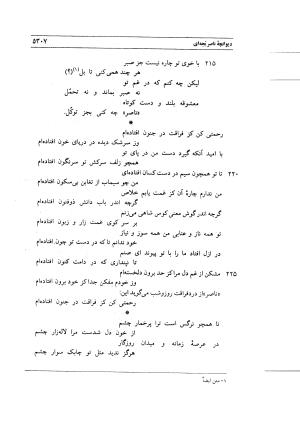 دیوانچهٔ ناصر بُجه‌ای
۵۳۰۷
۲۱۵ با خوی تو چاره نیست جز صبر
هر چند همی‌کنی تا بل(۱)(؟)
لیکن چه کنم که در غم تو
نه صبر بماند و نه تحمّل
معشوقه بلند و دست کوتاه
«ناصر» چه کنی بجز توکّل.
*
رحمتی کن کز فراقت در جنون افتاده‌ام
وز سرشک دیده در دریای خون افتاده‌ام
با امید آنکه گیرد دست من در پای تو
همچو زلف سرکش تو سرنگون افتاده‌ام
۲۲۰ تا تو همچون سیم در دست کسان افتاده‌ای
من چو سیماب از تفابن بی‌سکون افتاده‌ام
من ندارم چارهٔ آن کز غمت یابم خلاص
گرچه اندر باب دانش ذوفنون افتاده‌ام
گرچه اندر گوش معنی کوس شاهی می‌زنم
بر سر کوی غمت زار و زبون افتاده‌ام
تو همه ناز و عتابی من همه سوز و نیاز
خود ندانم تا که در دست تو چون افتاده‌ام
در ازل افتاد ما را با تو پیوند ای صنم
تا نپنداری که در دامت کنون افتاده‌ام
۲۲۵ مشکن از غم دل مرا کز حد برون دلخسته‌ام
وز خودم مفکن جدا کز خود برون افتاده‌ام
«ناصر»م از درد فراقت روز و شب می‌گوید این:
رحمتی کن کز فراقت در جنون افتاده‌ام
*
تا همچو نرگس است ترا پرخمار چشم
از خون دل شدست مرا لاله‌زار چشم
در عرصهٔ زمانه و میدان روزگار
هرگز ندید مثل تو چابک سوار چشم
۱- متن ایضاً